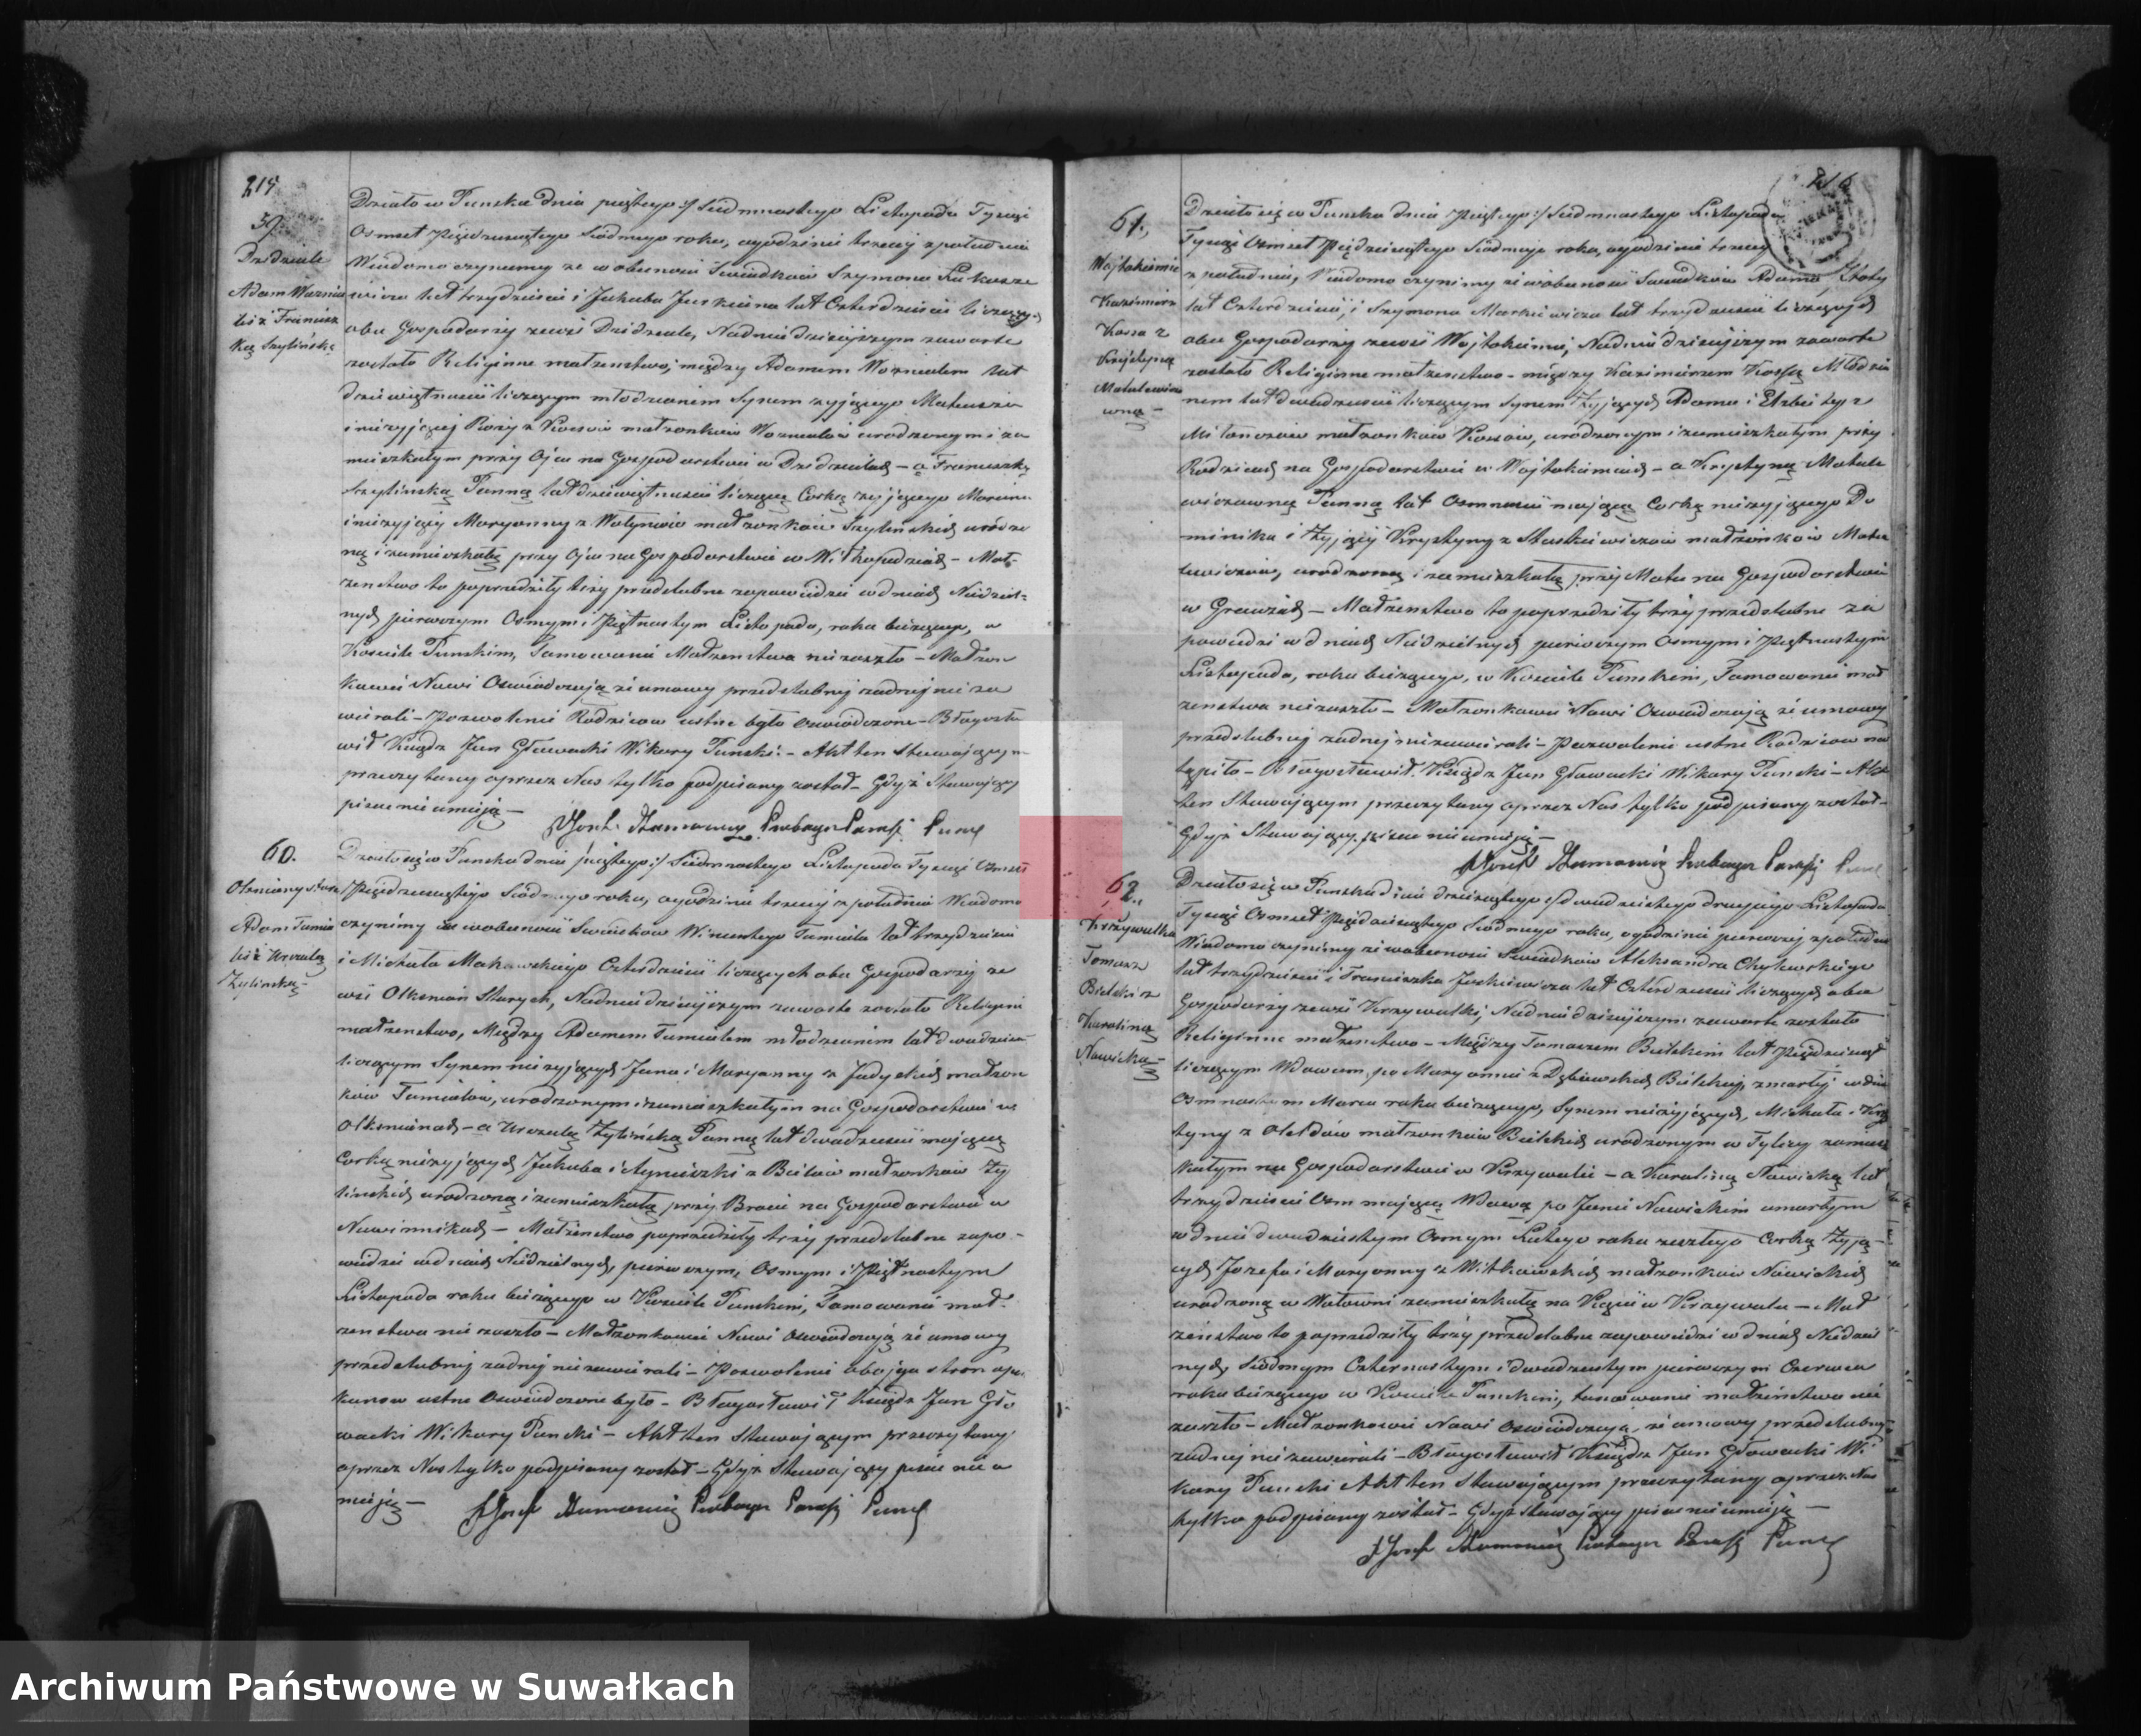 215
59.
Dzidziule
Adam Waznia
lis z Francisz
ką Szylińską
Działo w Puńsku dnia piątego :/ siedmnastego Listopada Tysiąc
Osmset Pięćdziesiątego Siódmego roku, o godzinie trzeciej z południa
Wiadomo czynimy że w obecności Świadków Szymona Łukasze
wicza lat trzydzieści i Jakuba Juszkiena lat Czterdzieści liczących
obu Gospodarzy ze wsi Dzidziule, Na dniu dzisiejszym zawarte
zostało Religijne małżenstwo, między Adamem Waznialem lat
dziewiętnaście liczącym młodzianem Synem żyjącego Mateusza
i nieżyjącej Rozy z małżonków urodzonym i za
mieszkałym przy Ojcu na Gospodarstwie w Dzidziulach – a Franciszką
Szylińską Panną lat dziewiętnaście liczącą Corką żyjącego
i nieżyjącej Maryanny z małżonków Szylińskich urodzo
ną i zamieszkałą przy Ojcu na Gospodarstwie w – Mał-
zenstwo to poprzedziły trzy przedslubne zapowiedzi w dniach Niedziel-
nych pierwszym Osmym i Piętnastym Listopada, roku bieżącego, w
Kościele Puńskim, Tamowanie Małżenstwa nie zaszło – Małżon
kowie Nowi Oswiadczają że umowy przedslubnej zadnej nie za
wierali – Pozwolenie Rodziców ustne było oswiadczone – Błagosła
wił Ksiądz Jan Gławacki Wikary Puński. – Akt ten Stawającym
przeczytany a przez Nas tylko podpisany został – Gdyż Stawający
pisac nie umieją –
60.
Oleniany Stare
Adam Tamu
lis z Urszulą
Żylinską –
Działo się w Puńsku dnia piątego :/ siedmnastego Listopada Tysiąc Osmset
Pięćdziesiątego Siódmego roku, o godzinie trzeciej z południa Wiadomo
czynimy że w obecności Świadków Wincentego lat trzydzieści
i Michała Czterdzieści liczących obu Gospodarzy ze
wsi Starych, Na dniu dzisiejszym zawarte zostało Religijne
małżenstwo, Między Adamem młodzianem lat dwadzieścia
liczącym Synem nieżyjących Jana i Maryanny z małżon
ków urodzonym i zamieszkałym na Gospodarstwie w
– a Urszulą Żylińską Panną lat dwadzieścia mającą
Corką nieżyjących Jakuba i Agnieszki z małżonków Ży
lińskich urodzoną i zamieszkałą przy Bracie na Gospodarstwie w
Nowinnikach – Małżenstwo poprzedziły trzy przedslubne zapo-
wiedzi w dniach Niedzielnych, pierwszym, Osmym i Piętnastym
Listopada roku bieżącego w Kościele Puńskim, Tamowanie mał-
zenstwa nie zaszło – Małżonkowie Nowi Oswiadczają że umowy
przedslubnej zadnej nie zawierali – Pozwolenie obojga stron opie
kunow ustne Oswiadczone było – Błagosławił Ksiądz Jan Gło
wacki Wikary Puński – Akt ten Stawającym przeczytany
a przez Nas tylko podpisany został – Gdyż Stawający pisac nie u
mieją –
216
61.
Wojtokiemie
Kazimierz
Kossa z
Krystyną
Matulewiczo
wną –
Działo się w Puńsku dnia piątego :/ siedmnastego Listopada
Tysiąc Osmset Pięćdziesiątego Siódmego roku, o godzinie trzeciej
z południa, Wiadomo czynimy że w obecności Świadków Adama
lat Czterdzieści, i Szymona Markiewicza lat trzydzieści liczących
obu Gospodarzy ze wsi Wojtokiemie, Na dniu dzisiejszym zawarte
zostało Religijne małżenstwo – między Kazimierzem Kossą Młodzia
nem lat dwadzieścia liczącym Synem Żyjących Adama i Elzbiety z
małżonków Kossów, urodzonym i zamieszkałym przy
Rodzicach na Gospodarstwie w Wojtokiemiach – a Krystyną Matule
wiczówną Panną lat Osmnaście mającą Corką nieżyjącego Do
minika i Żyjącej Krystyny z małżonków Matu
lewiczów, urodzoną i zamieszkałą przy Matce na Gospodarstwie
w – Małżenstwo to poprzedziły trzy przedslubne za
powiedzi w dniach Niedzielnych pierwszym Osmym i Piętnastym
Listopada, roku bieżącego, w Kościele Puńskim, Tamowanie mał
zenstwa nie zaszło – Małżonkowie Nowi Oswiadczają że umowy
przedslubnej zadnej nie zawierali – Pozwolenie ustne Rodziców na
stąpiło – Błagosławił Ksiądz Jan Gławacki Wikary Puński – Akt
ten Stawającym przeczytany a przez Nas tylko podpisany został –
Gdyż Stawający pisac nie umieją –
62.
Krzywulka
Tomasz
Bielski z
Karoliną
Nawicką –
Działo się w Puńsku dnia dziesiątego :/ dwudziestego drugiego Listopada
Tysiąc Osmset Pięćdziesiątego Siódmego roku, o godzinie pierwszej z południa
Wiadomo czynimy że w obecności Świadków Aleksandra
lat trzydzieści i Franciszka lat Czterdzieści liczących obu
Gospodarzy ze wsi Krzywulki, Na dniu dzisiejszym zawarte zostało
Religijne małżenstwo – Między Tomaszem Bielskim lat Pięćdziesiąt
liczącym Wdowcem, po Maryannie z Bielskiej, zmarłej w dniu
Osmnastym Marca roku bieżącego, Synem nieżyjących, Michała i Krys
tyny z małżonków Bielskich urodzonym w zamiesz
kałym na Gospodarstwie w Krzywulce – a Karoliną Nawicką lat
trzydzieści Osm mającą Wdową po Janie Nawickim umarłym
w dniu dwudziestym Osmym Lutego roku zeszłego Corką Żyją-
cych Jozefa i Maryanny z Witkowskich małżonków Nawickich
urodzoną w zamieszkałą na w Krzywulce – Mał
żeństwo to poprzedziły trzy przedslubne zapowiedzi w dniach Niedziel
nych, Siódmym Czternastym i dwudziestym pierwszym Czerwca
roku bieżącego w Kościele Puńskim, tamowanie małżeństwa nie
zaszło – Małżonkowie Nowi Oswiadczają, że umowy przedslubnej
zadnej nie zawierali – Błagosławił Ksiądz Jan Głowacki Wi
kary Puński Akt ten Stawającym przeczytany a przez Nas
tylko podpisany został – Gdyż Stawający pisac nie umieją –
Archiwum Państwowe w Suwałkach